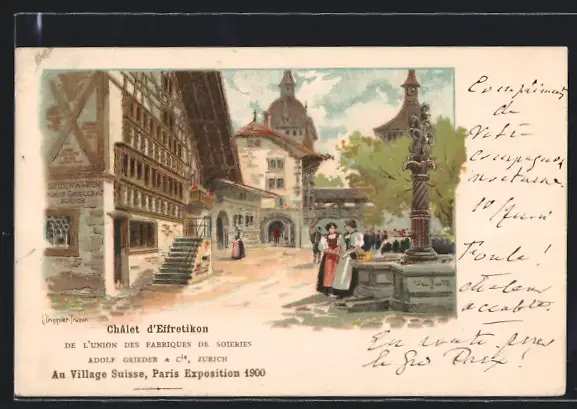 Compliments
de
votre
compagnon
nocturne
10 Juin
Foule!
chaleur
accablte.
En route pour
le gro
SEIDENWAREN
Châlet d'Effretikon
DE L'UNION DES FABRIQUES DE SOIERIES
ADOLF GRIEDER & Cie, ZURICH
Au Village Suisse, Paris Exposition 1900